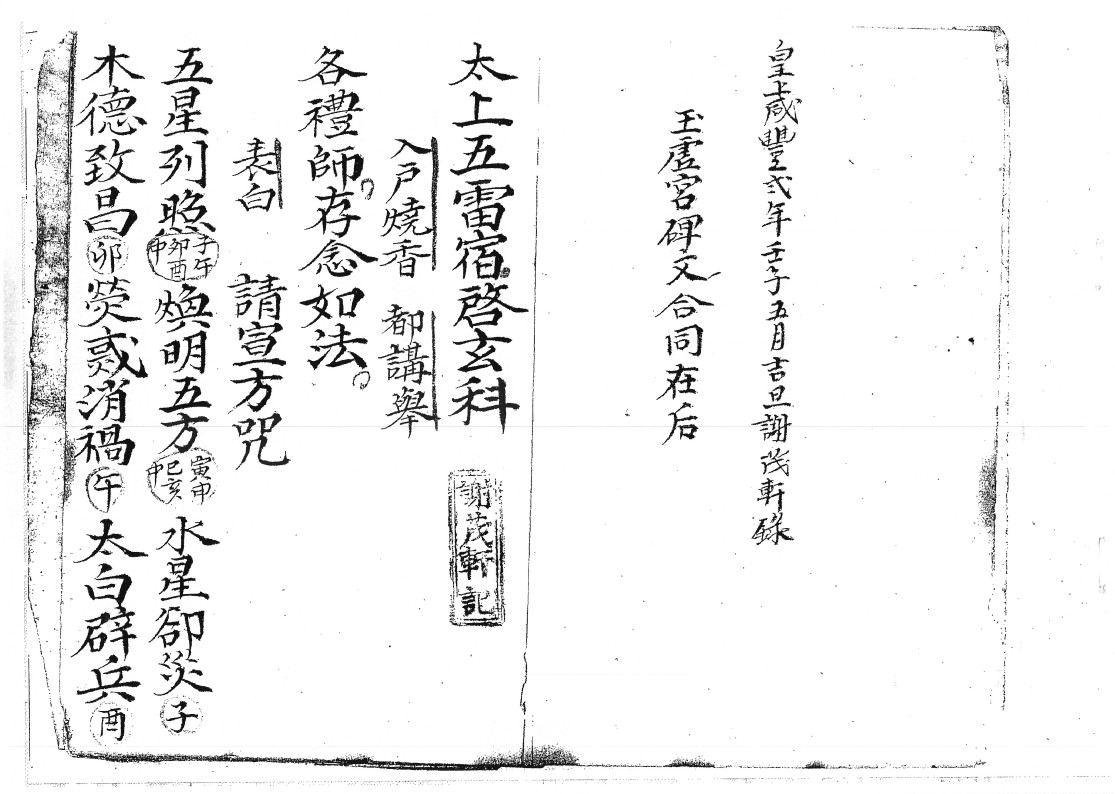 皇上咸豐弍年壬子五月吉旦謝茂軒錄
玉虛宮碑文合同在后
太上五雷宿啓玄科
謝茂軒記
入戶燒香 都講舉
各禮師。存念如法。
表白 請宣方咒
五星列照 子午卯酉中 煥明五方 寅申巳亥中 水星卻災 子
木德致昌 卯 熒惑消禍 午 太白辟兵 酉